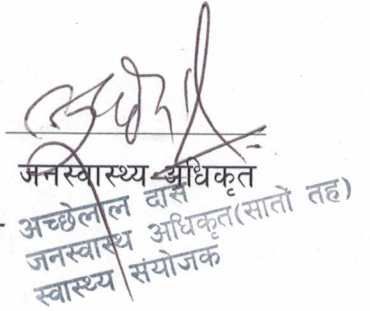 जनस्वास्थ्य अधिकृत
अच्छेलाल दास
जनस्वास्थ अधिकृत(सातौ तह)
स्वास्थ्य संयोजक